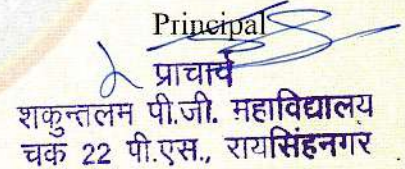 Principal
प्राचार्य
शकुन्तलम पी.जी. महाविद्यालय
चक 22 पी.एस., रायसिंहनगर